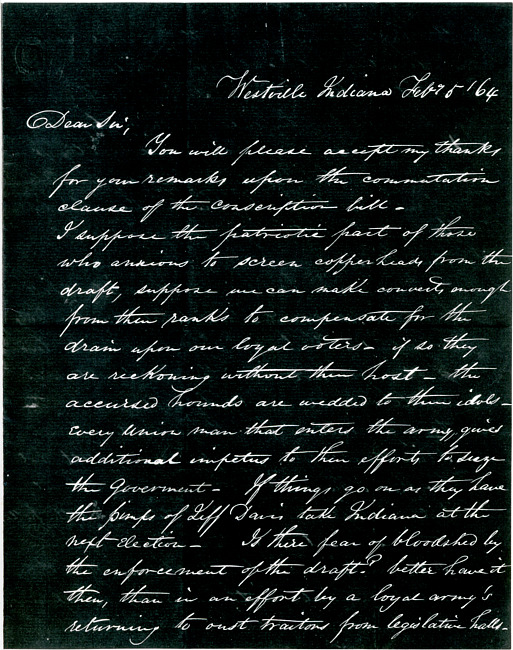 Westville Indiana Feby 5 '64
Dear Sir,
You will please accept my thanks
for your remarks upon the commutation
clause of the conscription bill -
I suppose the patriotic part of those
who anxious to screen copperheads from the
draft, suppose we can make converts enough
from their ranks to compensate for the
drain upon our loyal voters - if so they
are reckoning without their host - the
accursed hounds are wedded to their idols -
Every Union man that enters the army, gives
additional impetus to their efforts to seize
the Goverment - If things go on as they have
the pimps of Jeff Davis take Indiana at the
next Election - Is there fear of bloodshed by
the enforcement of the draft? better have it
then, than in an effort by a loyal army's
returning to oust traitors from legislative halls -